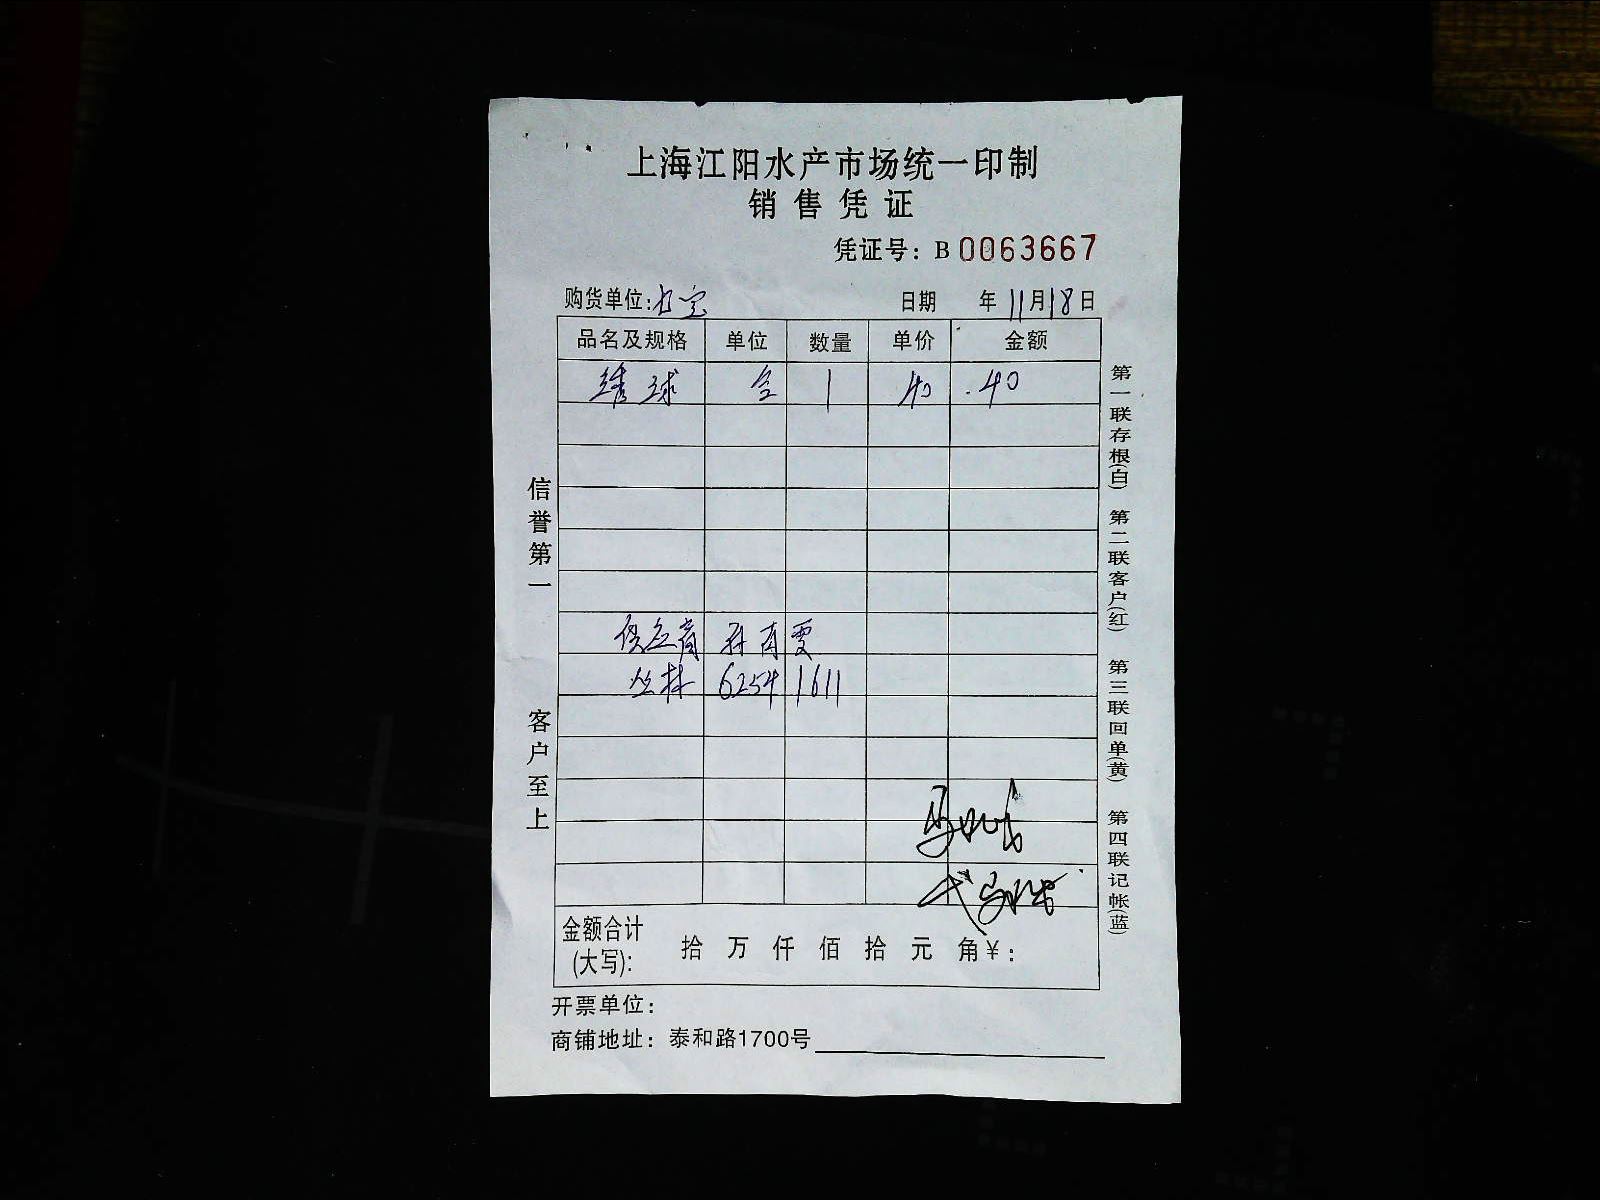 上海江阳水产市场统一印制
销售凭证
凭证号：B 0063667
购货单位：
日期 年 11月18日
品名及规格 单位 数量 单价 金额
绣球 1 40 .40
供应商
丛林 6254 1611
金额合计
(大写)： 拾 万 仟 佰 拾 元 角 ¥：
开票单位：
商铺地址：泰和路1700号
信誉第一 客户至上
第一联存根(白) 第二联客户(红) 第三联回单(黄) 第四联记帐(蓝)